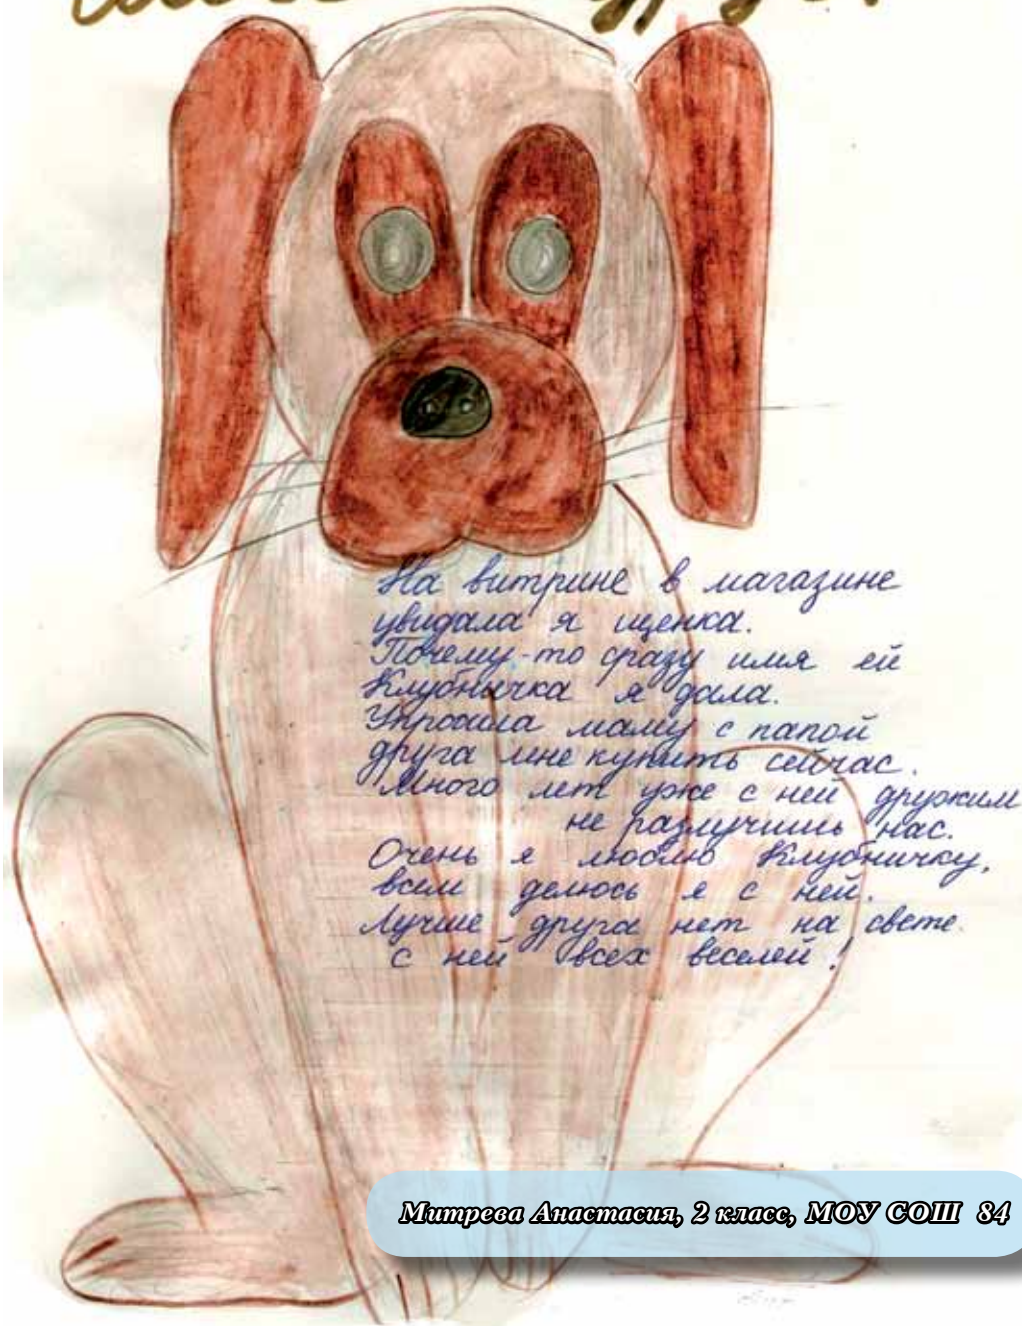 На витрине в магазине
увидала я щенка.
Почему-то сразу имя ей
Клубничка я дала.
Упросила маму с папой
друга мне купить сейчас.
Много лет уже с ней дружим
не разлучишь нас.
Очень я люблю Клубничку,
всем делюсь я с ней.
Лучше друга нет на свете
с ней всех веселей!
Митрева Анастасия, 2 класс, МОУ СОШ 84